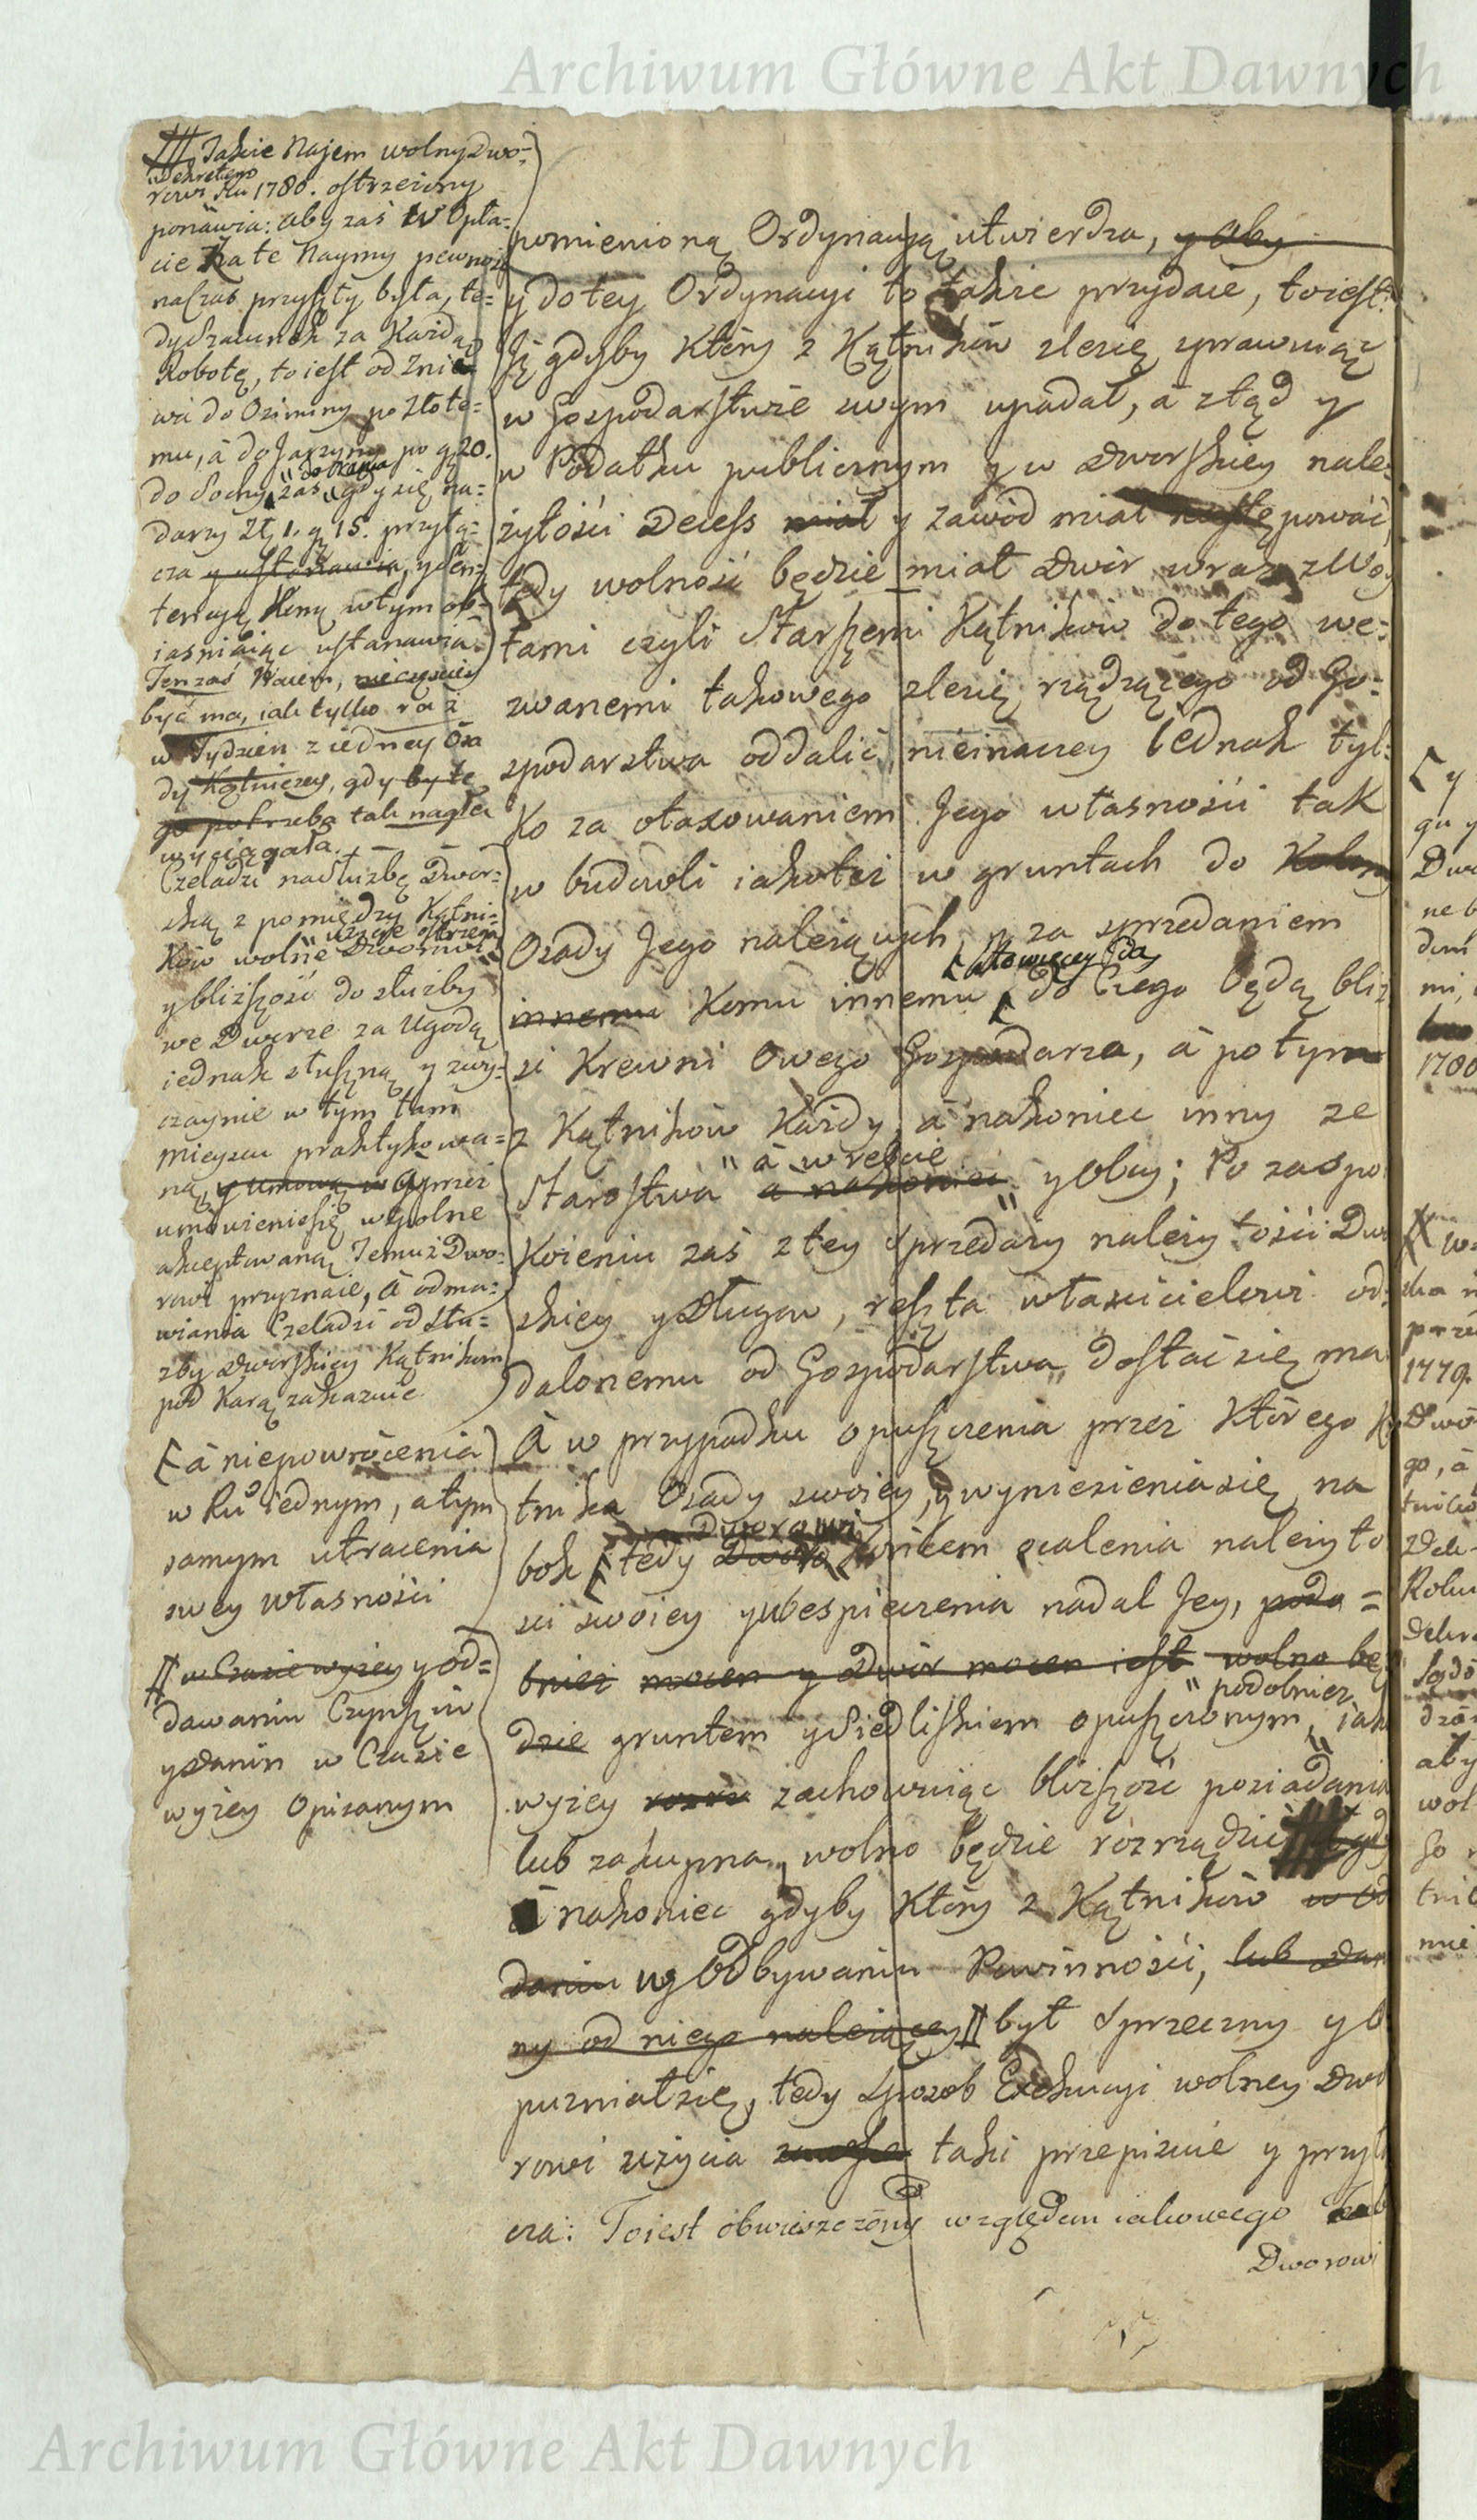 Archiwum Główne Akt Dawnych
Takie Najem wolny Dwo-
Dekretem
rowi Ru 1780. ostrzeżony
ponawia: aby zaś w Opła-
cie za te Naymy pewność
na Czas przyszły była, te-
dy Szacunek za Każdą
Robotę, to iest od Żni-
wa do Oziminy po złote-
mu, á do Jarzyny po g. 20.
do Sochy zaś gdy się na-
darzy Zł. 1. g. 15. przyłą-
cza y ustanawia, y Sen-
tencyą Ninę w tym ob-
iasniaiąc ustanawia.
Ten zaś Naiem, nie częściey
być ma, iak tylko raz
w Tydzień z iedney Osa
dy Kątniczey, gdy by te
go potrzeba tak nagła
wyciągała.
Czeladzi na służbę Dwor-
ską z pomiędzy Kątni-
ków wolne użycie Dworowi
y bliższość do służby
we Dworze za Ugodą
iednak słuszną y zwy-
czaynie w tym tam
mieyscu praktykowa-
ną y umową
umówienie się wspólne
akceptowaną Temuż Dwo-
rowi przyznaie, á odma-
wiania Czeladzi od słu-
żby Dworskiey Kątnikom
pod Karą zakazuie
á niepowrócenia
w Ru iednym, a tym
samym utracenia
swey własności
w Czasie wyżey y od-
dawaniu Czynszów
y Danin w Czasie
wyżey opisanym
pomienioną Ordynacyą utwierdza, y aby
y do tey Ordynacyi to także przydaie, to iest:
Iż gdyby Który z Kątników zle się sprawuiąc
w Gospodarstwie swym upadał, á ztąd y
w Podatku publicznym y w Dworskiey nale-
żytości Decess miał y zawód miał następować,
tedy wolność będzie miał Dwór wraz z Woy-
tami czyli Starszemi Kątników do tego we-
zwanemi takowego zle się rządzącego od Go-
spodarstwa oddalić, nieinaczey iednak tyl-
Ko za otaxowaniem Jego własności tak
w budowli iakoteż w gruntach do
Osady Jego należących, y za sprzedaniem
innemu Komu innemu do Czego będą bliż
si Krewni Owego Gospodarza, á potym
z Kątników Każdy, á nakoniec inny ze
á w reście
Starostwa á nakoniec y Obcy; Po zaspo
Koieniu zaś z tey Sprzedaży należytości Dwo
skiey y Długow, reszta właścicielowi od-
dalonemu od Gospodarstwa, dostać się ma
A w przypadku opuszczenia przez Którego Ką
tnika Osady swoiey, y wyniesienia się na
Dworowi
bok tedy Dwór Końcem ocalenia należyto
ści swoiey y ubespieczenia nadal Jey, podo =
bnież mocen y Dwór mocen iest wolno bę
podobnież
dzie gruntem y Siedliskiem opuszczonym, iak
wyżey zachowuiąc bliższość posiadania
lub zakupna, wolno będzie rozrządzić
á nakoniec gdyby Który z Kątników w od
daniu w Odbywaniu Powinności, lub Dan
ny od niego należącey był Sprzeczny y o
purniał się, tedy Sposob Exekucyi wolney Dwo
rowi użycia taki przepisuie y przyłą
cza: To iest obwieszczony względem iakowego
Dworowi
Archiwum Główne Akt Dawnych